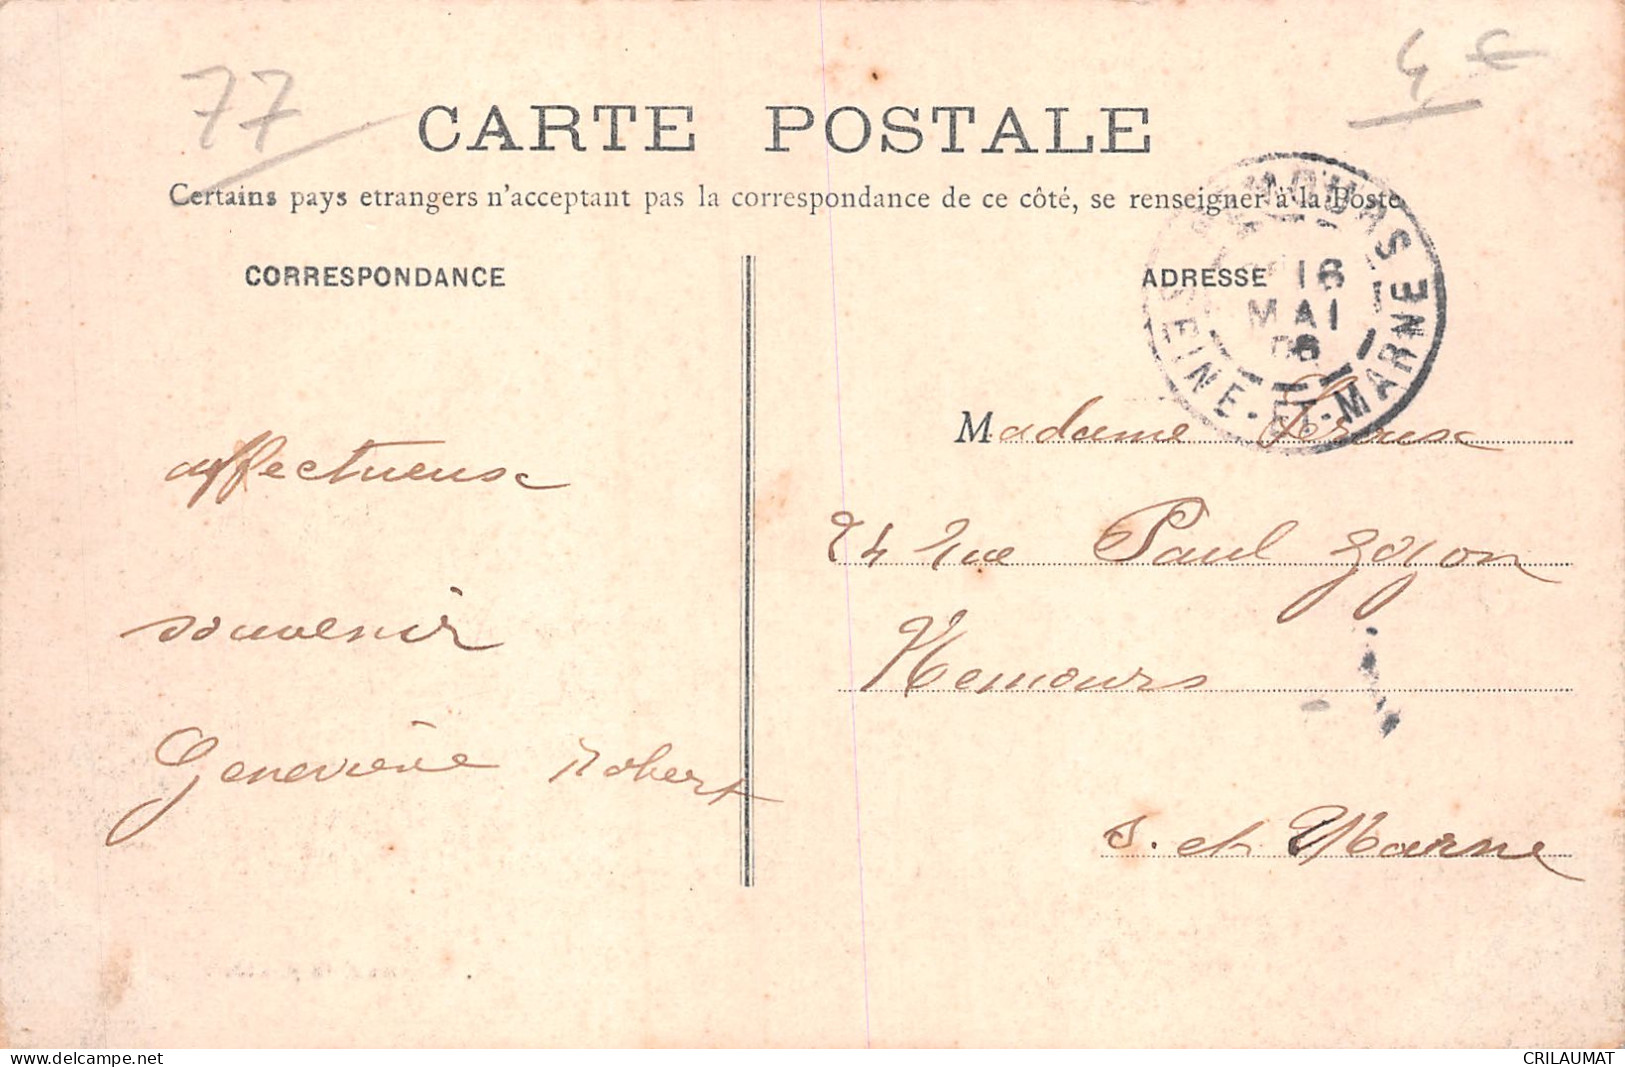 77
4 €
CARTE POSTALE
Certains pays etrangers n'acceptant pas la correspondance de ce côté, se renseigner à la Poste
CORRESPONDANCE
ADRESSE
NEMOURS
16
MAI
08
SEINE-ET-MARNE
affectueuse
souvenir
Geneviève Robert
Madame
24 rue Paul gojon
Nemours
S. et Marne
www.delcampe.net
CRILAUMAT